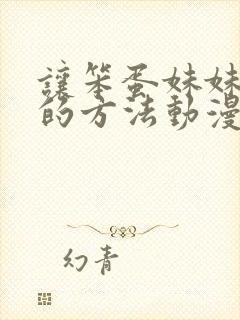 讓笨蛋妹妹
的方法動漫
幻青